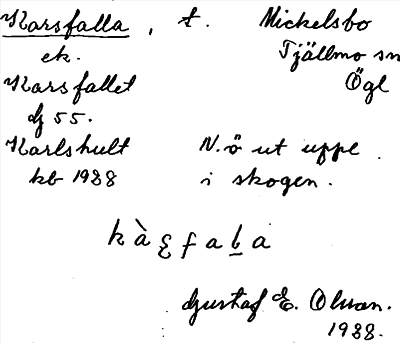 Karsfalla, t. Mickelsbo
ek. Tjällmo sn
Karsfallet Ögl
dj 55.
Karlshult N.ö ut uppe
kb 1938 i skogen.
Gustaf E. Olson.
1938.